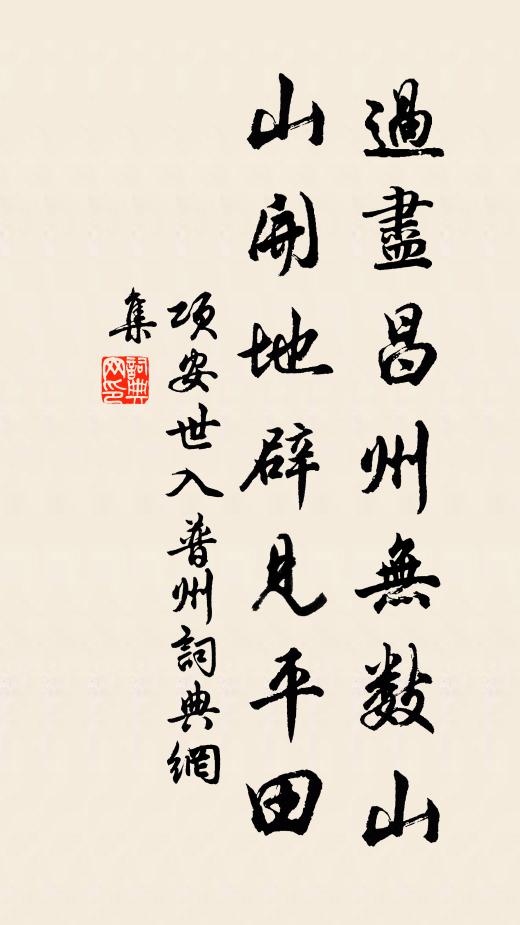 過盡昌州無數山
山開地辟見平田
項安世入普州詞典網
集
詞典
网印